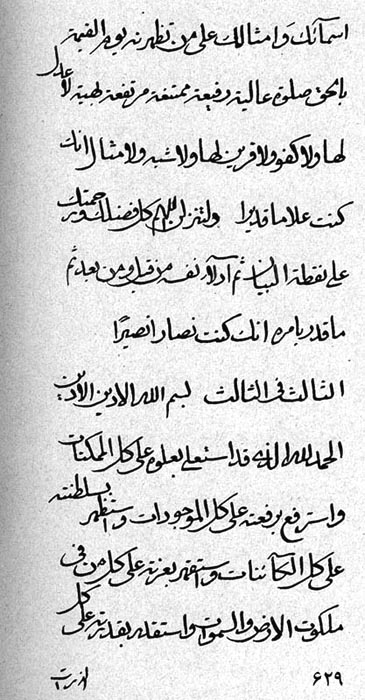 اسمآئك وامثالك على من تظهرنه يوم القيمة
بالحق صلوة عالية رفيعة ممتنعة مرتفعة لهبة لا عدل
لها ولا كفو ولا قرين لها ولا شبه ولا مثال انك
كنت علاما قديرا ولتنزلن اللهم كل فضلك ورحمتك
على نقطة البيان ثم ادلآء نفسه من قبل ومن بعد ثم
ما قدر بامره انك كنت نصارا نصيرًا
الثالث فى الثالث بسم الله الادين الادين
الحمد لله الذى قد استعلى بعلوه على كل الممكنات
واسترفع برفعته على كل الموجودات واستظهر بسلطنته
على كل الكآئنات واستقهر بعزته على كل من فى
ملكوت الارض والسموات واستقدر بقدرته على كل
٦٢٩